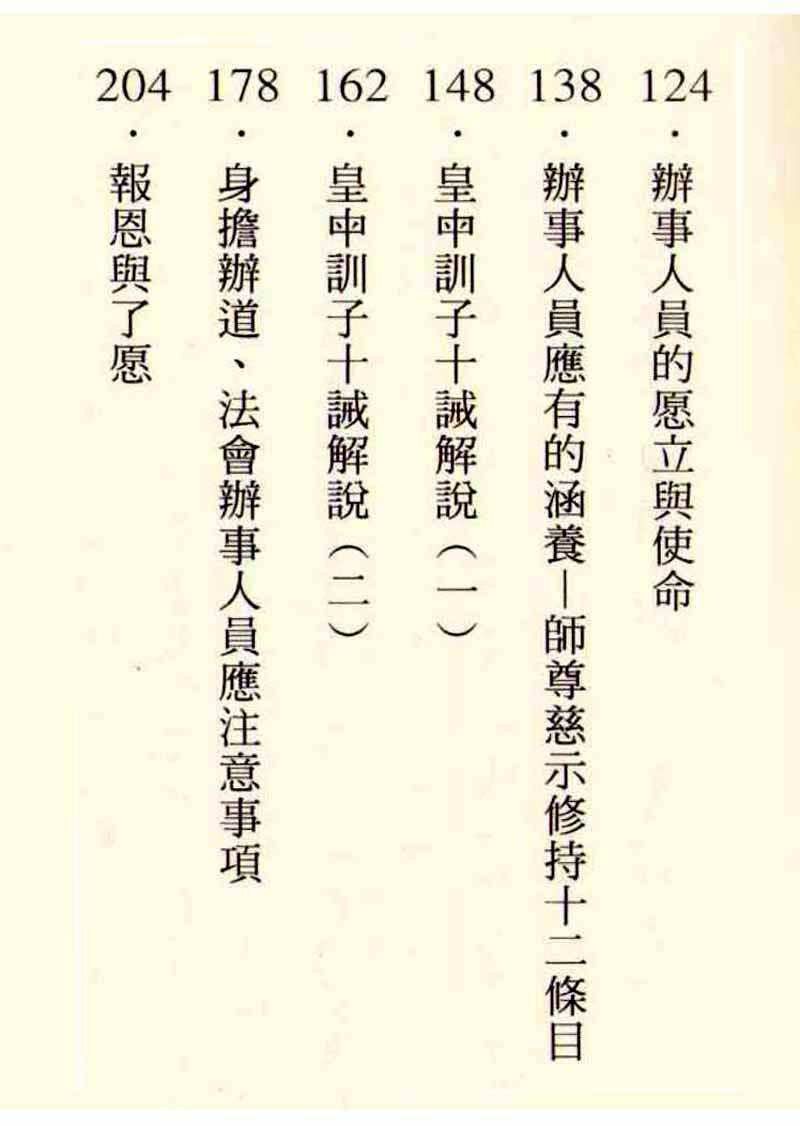 124・辦事人員的愿立與使命
138・辦事人員應有的涵養—師尊慈示修持十二條目
148・皇𣫭訓子十誡解說（一）
162・皇𣫭訓子十誡解說（二）
178・身擔辦道、法會辦事人員應注意事項
204・報恩與了愿